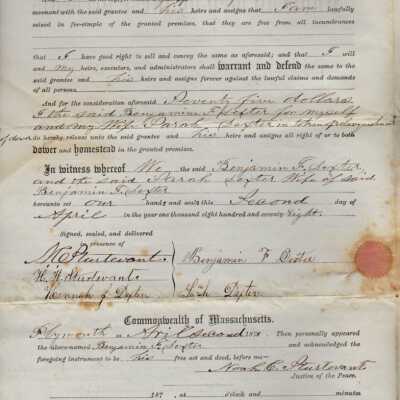 ovenant with the said grantee and his heirs and assigns that I am lawfully
seized in fee-simple of the granted premises, that they are free from all incumbrances
that I have good right to sell and convey the same as aforesaid; and that I will
and my heirs, executors, and administrators shall warrant and defend the same to the
said grantee and his heirs and assigns forever against the lawful claims and demands
of all persons.
And for the consideration aforesaid Seventy five dollars
I the said Benjamin F. Dexter for myself
and my Wife Sarah Dexter in
do hereby release unto the said grantee and his heirs and assigns all right of or to both
dower and homestead in the granted premises.
In witness whereof We the said Benjamin F. Dexter
and the said Sarah Dexter Wife of said
Benjamin F. Dexter
hereunto set our hands and seals this Second day of
April in the year one thousand eight hundred and seventy Eight.
Signed, sealed, and delivered
presence of
N. C. Sturtevant
H. H. Sturdevant
Hannah J. Dexter
Benjamin F Dexter
Dexter
Commonwealth of Massachusetts.
Plymouth ss April second 1878. Then personally appeared
the above-named Benjamin F. Dexter and acknowledged the
foregoing instrument to be his free act and deed, before me—
Noah C. Sturtevant
Justice of the Peace.
187 at o'clock and minutes